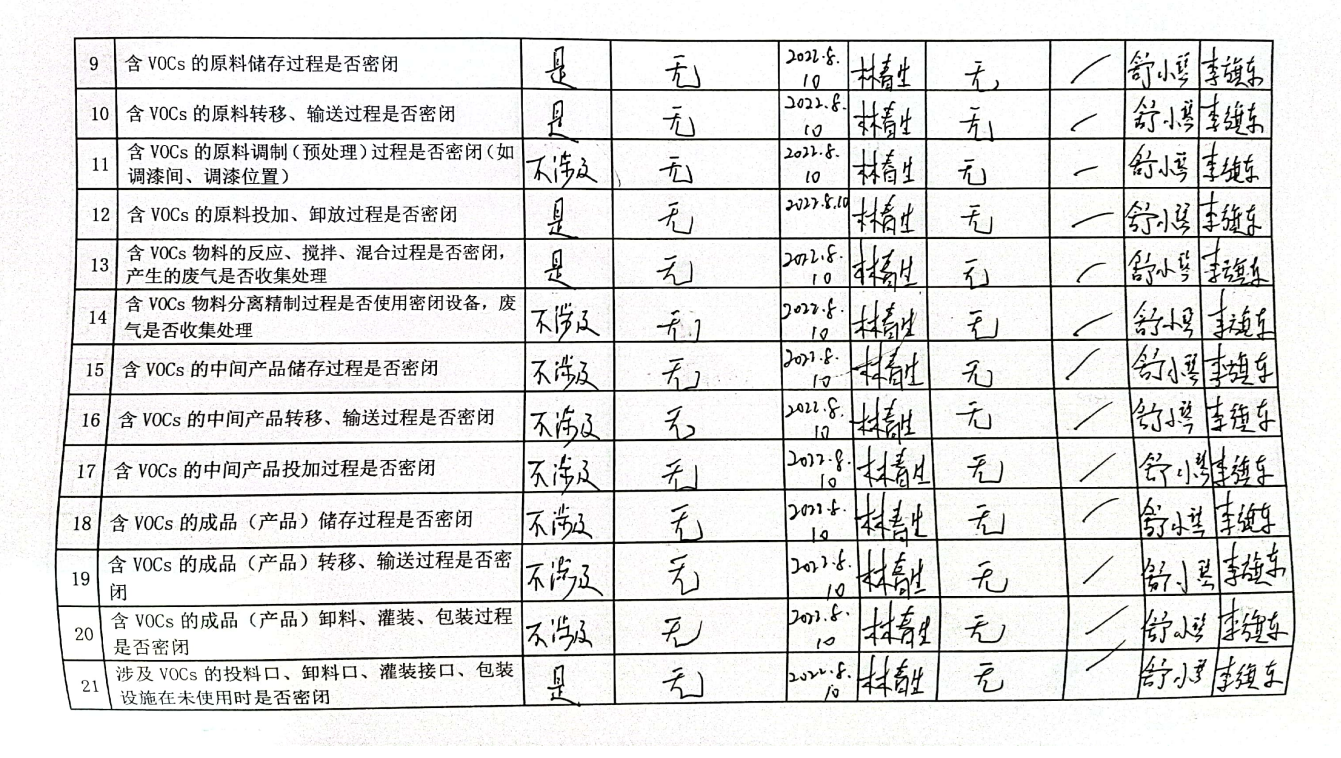 9 含 VOCs 的原料储存过程是否密闭 是 无 2022.8.10 林春生 无 / 舒小琴
10 含 VOCs 的原料转移、输送过程是否密闭 是 无 2022.8.10 林春生 无 / 舒小琴
11 含 VOCs 的原料调制(预处理)过程是否密闭(如
调漆间、调漆位置) 不涉及 无 2022.8.10 林春生 无 / 舒小琴
12 含 VOCs 的原料投加、卸放过程是否密闭 是 无 2022.8.10 林春生 无 / 舒小琴
13 含 VOCs 物料的反应、搅拌、混合过程是否密闭,
产生的废气是否收集处理 是 无 2022.8.10 林春生 无 / 舒小琴
14 含 VOCs 物料分离精制过程是否使用密闭设备,废
气是否收集处理 不涉及 无 2022.8.10 林春生 无 / 舒小琴
15 含 VOCs 的中间产品储存过程是否密闭 不涉及 无 2022.8.10 林春生 无 / 舒小琴
16 含 VOCs 的中间产品转移、输送过程是否密闭 不涉及 无 2022.8.10 林春生 无 / 舒小琴
17 含 VOCs 的中间产品投加过程是否密闭 不涉及 无 2022.8.10 林春生 无 / 舒小琴
18 含 VOCs 的成品(产品)储存过程是否密闭 不涉及 无 2022.8.10 林春生 无 / 舒小琴
19 含 VOCs 的成品(产品)转移、输送过程是否密
闭 不涉及 无 2022.8.10 林春生 无 / 舒小琴
20 含 VOCs 的成品(产品)卸料、灌装、包装过程
是否密闭 不涉及 无 2022.8.10 林春生 无 / 舒小琴
21 涉及 VOCs 的投料口、卸料口、灌装接口、包装
设施在未使用时是否密闭 是 无 2022.8.10 林春生 无 / 舒小琴